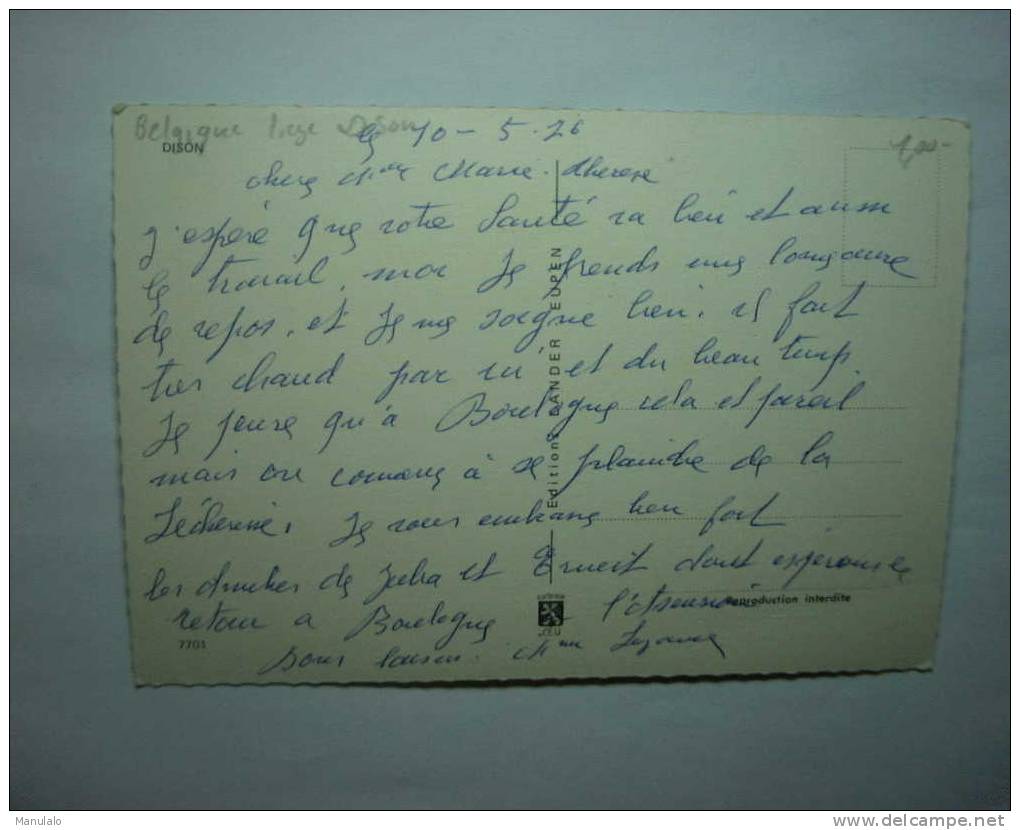 Belgique Liege Dison
DISON
le 10 - 5 - 26
1,00-
chere Mme Marie-therese
j'espère que votre Santé va bien et aussi
le travail, moi Je prends une
de repos, et Je me soigne bien. il fait
tres chaud par ici et du beau temp
Je pense qu'a Boulogne cela et pareil
mais on comence à se plaindre de la
Sécheresse, Je vous embrasse bien fort
les de Julia et Ernest dont esperons le
retour a Boulogne l'Ascension
Bons baisers. Mme Suzanne
Editions DANDER EUPEN
CEU
Reproduction interdite
7701
Manulalo
www.delcampe.net